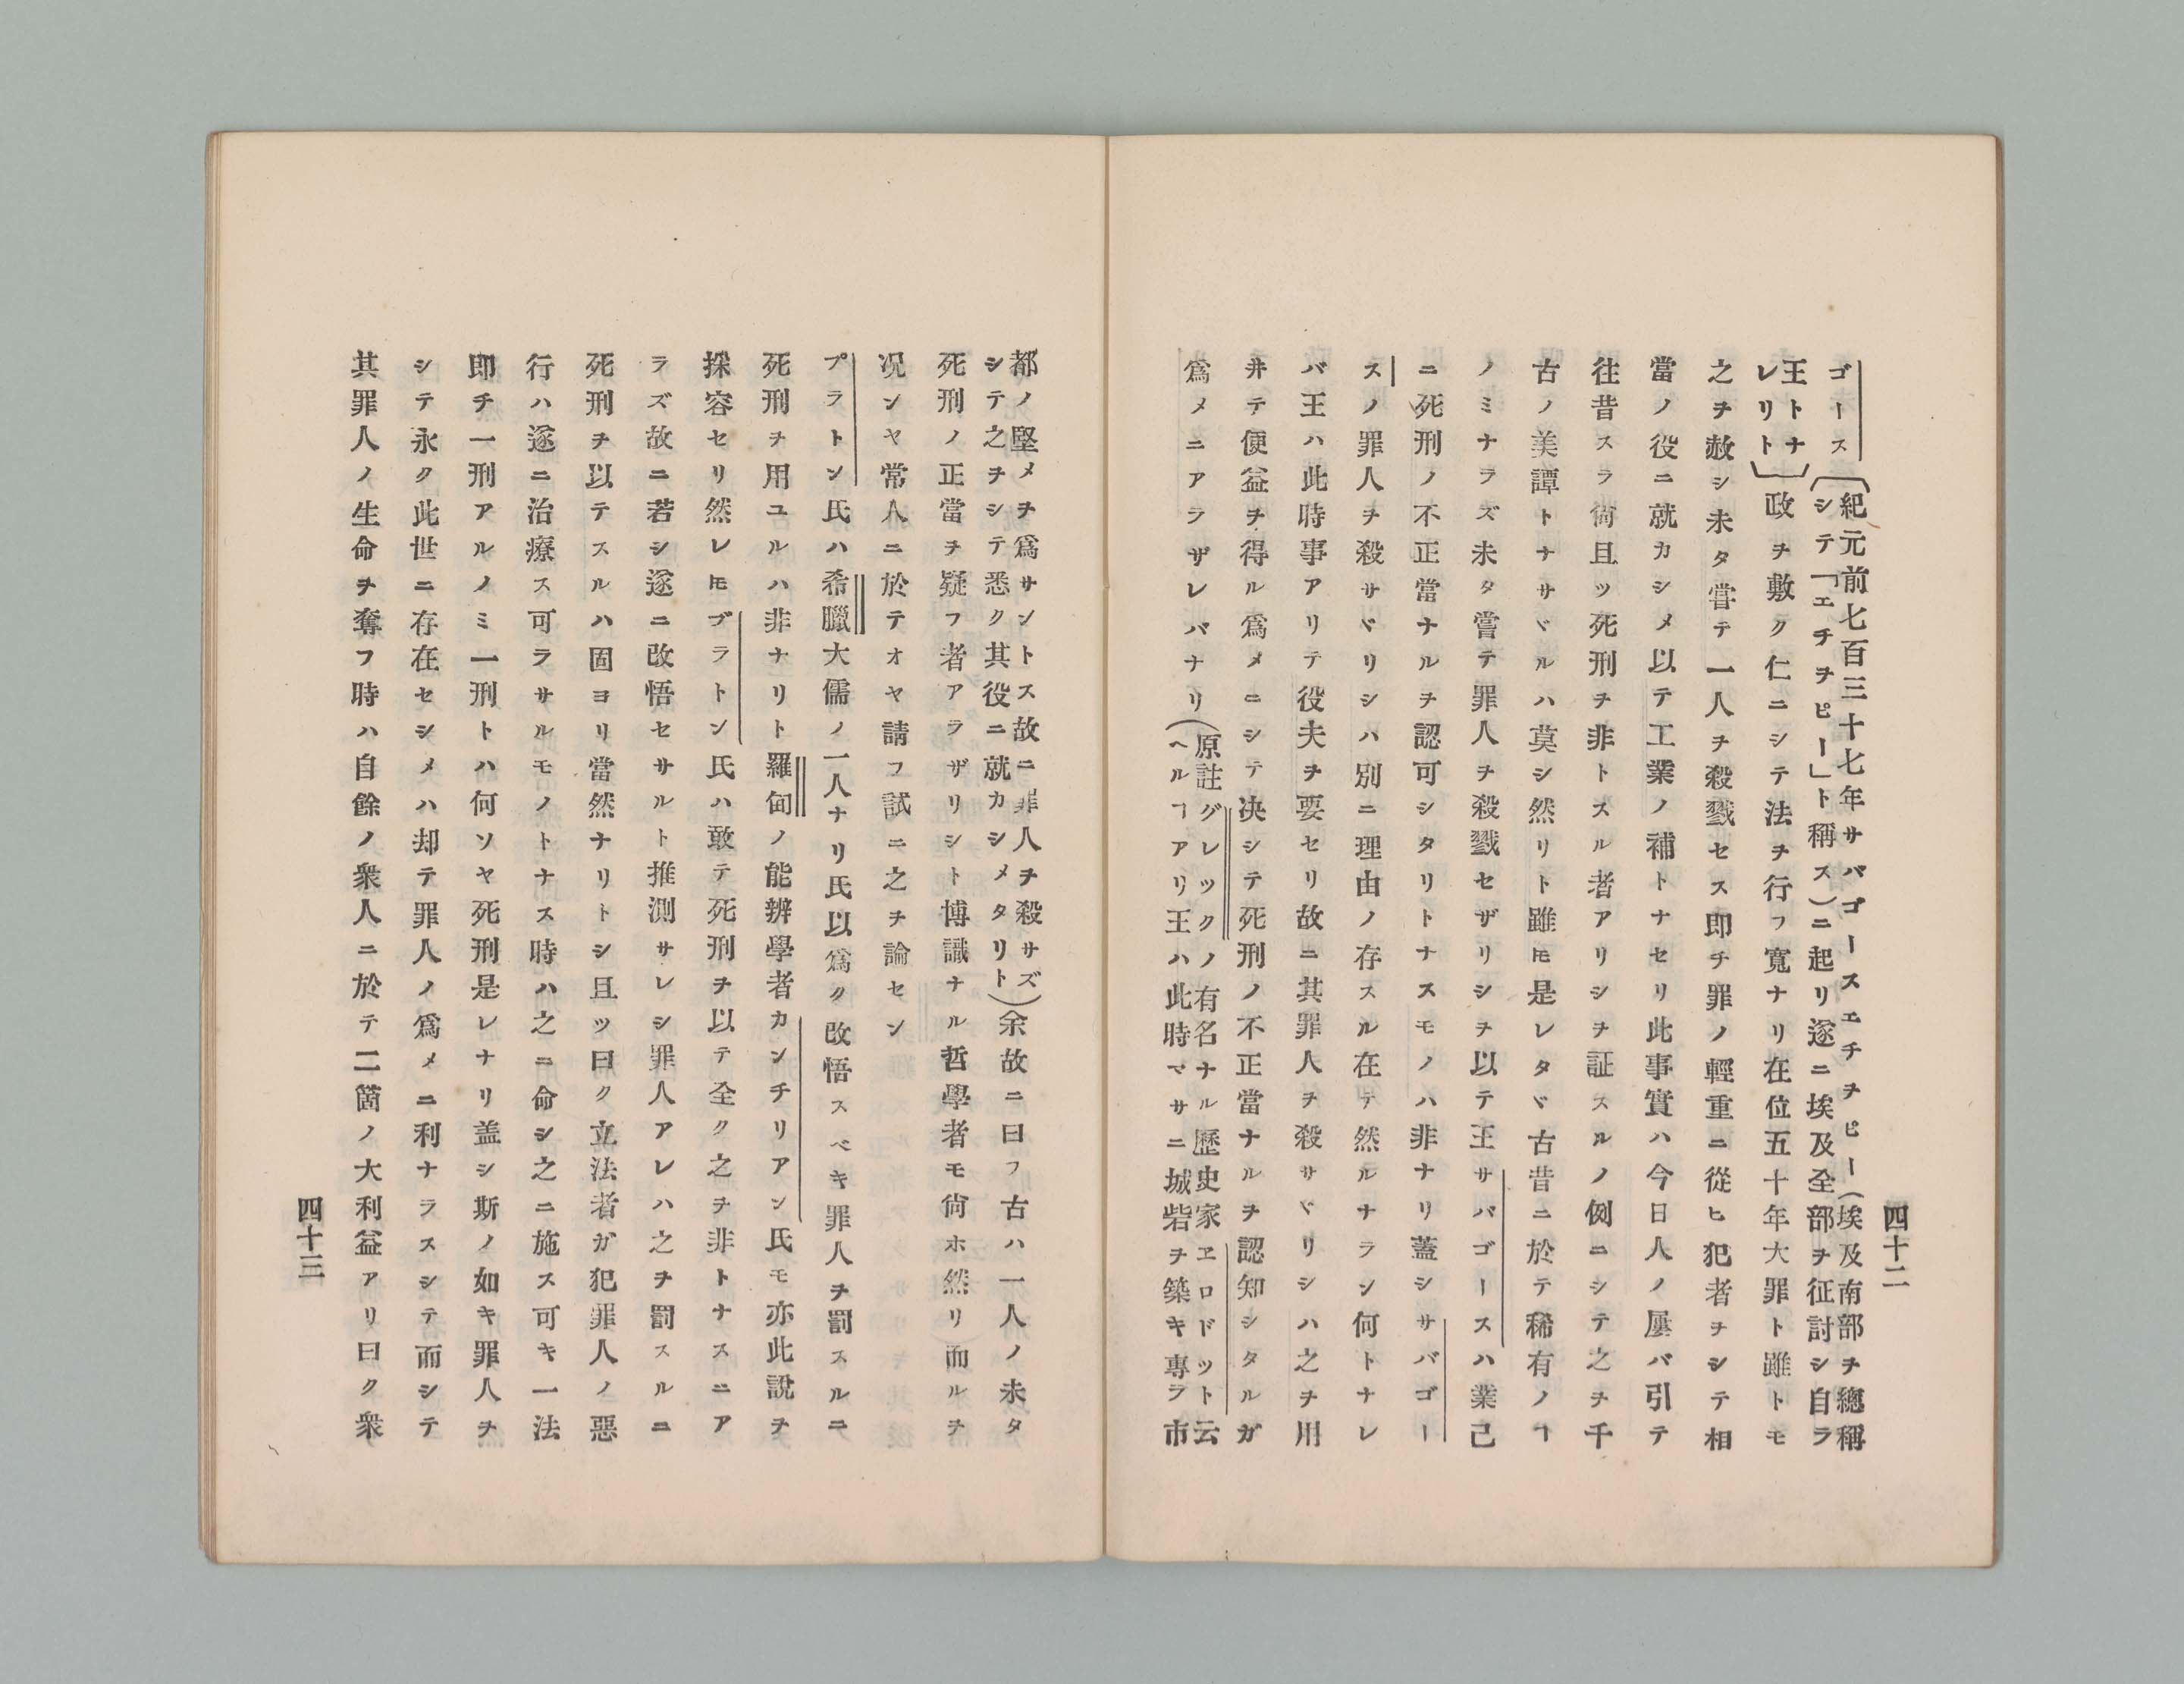 四十二
ゴース
〔紀元前七百三十七年サバゴースエチヲピー(埃及南部ヲ總稱
シテ「エチヲピー」ト稱ス)ニ起リ遂ニ埃及全部ヲ征討シ自ラ
王トナ
レリト〕
政ヲ敷ク仁ニシテ法ヲ行フ寛ナリ在位五十年大罪ト雖トモ
之ヲ赦シ未タ甞テ一人ヲ殺戮セス即チ罪ノ輕重ニ從ヒ犯者ヲシテ相
當ノ役ニ就カシメ以テ工業ノ補トナセリ此事實ハ今日人ノ屢バ引テ
往昔スラ尙且ツ死刑ヲ非トスル者アリシヲ証スルノ例ニシテ之ヲ千
古ノ美譚トナサヾルハ莫シ然リト雖𪜈是レタヾ古昔ニ於テ稀有ノヿ
ノミナラズ未タ嘗テ罪人ヲ殺戮セザリシヲ以テ王サバゴースハ業己
ニ死刑ノ不正當ナルヲ認可シタリトナスモノハ非ナリ蓋シサバゴー
スノ罪人ヲ殺サヾリシハ別ニ理由ノ存スル在テ然ルナラン何トナレ
バ王ハ此時事アリテ役夫ヲ要セリ故ニ其罪人ヲ殺サヾリシハ之ヲ用
井テ便益ヲ得ル爲メニシテ决シテ死刑ノ不正當ナルヲ認知シタルガ
爲メニアラザレバナリ
(原註グレックノ有名ナル歷史家ヱロドット云
ヘルヿアリ王ハ此時マサニ城砦ヲ築キ專ラ市
都ノ堅メヲ爲サントス故ニ罪人ヲ殺サズ
シテ之ヲシテ悉ク其役ニ就カシメタリト)
余故ニ曰フ古ハ一人ノ未タ
死刑ノ正當ヲ疑フ者アラザリシト博識ナル哲學者モ尙ホ然リ而ルヲ
况ンヤ常人ニ於テオヤ請フ試ニ之ヲ論セン
プラトン氏ハ希臘大儒ノ一人ナリ氏以爲ク改悟スベキ罪人ヲ罰スルニ
死刑ヲ用ユルハ非ナリト羅甸ノ能辨學者カンチリアン氏モ亦此說ヲ
採容セリ然レ𪜈プラトン氏ハ敢テ死刑ヲ以テ全ク之ヲ非トナスニア
ラズ故ニ若シ遂ニ改悟セサルト推測サレシ罪人アレハ之ヲ罰スルニ
死刑ヲ以テスルハ固ヨリ當然ナリトシ且ツ曰ク立法者ガ犯罪人ノ惡
行ハ遂ニ治療ス可ラサルモノトナス時ハ之ニ命シ之ニ施ス可キ一法
即チ一刑アルノミ一刑トハ何ソヤ死刑是レナリ盖シ斯ノ如キ罪人ヲ
シテ永ク此世ニ存在セシメハ却テ罪人ノ爲メニ利ナラスシテ而シテ
其罪人ノ生命ヲ奪フ時ハ自餘ノ衆人ニ於テ二箇ノ大利益アリ曰ク衆
四十三